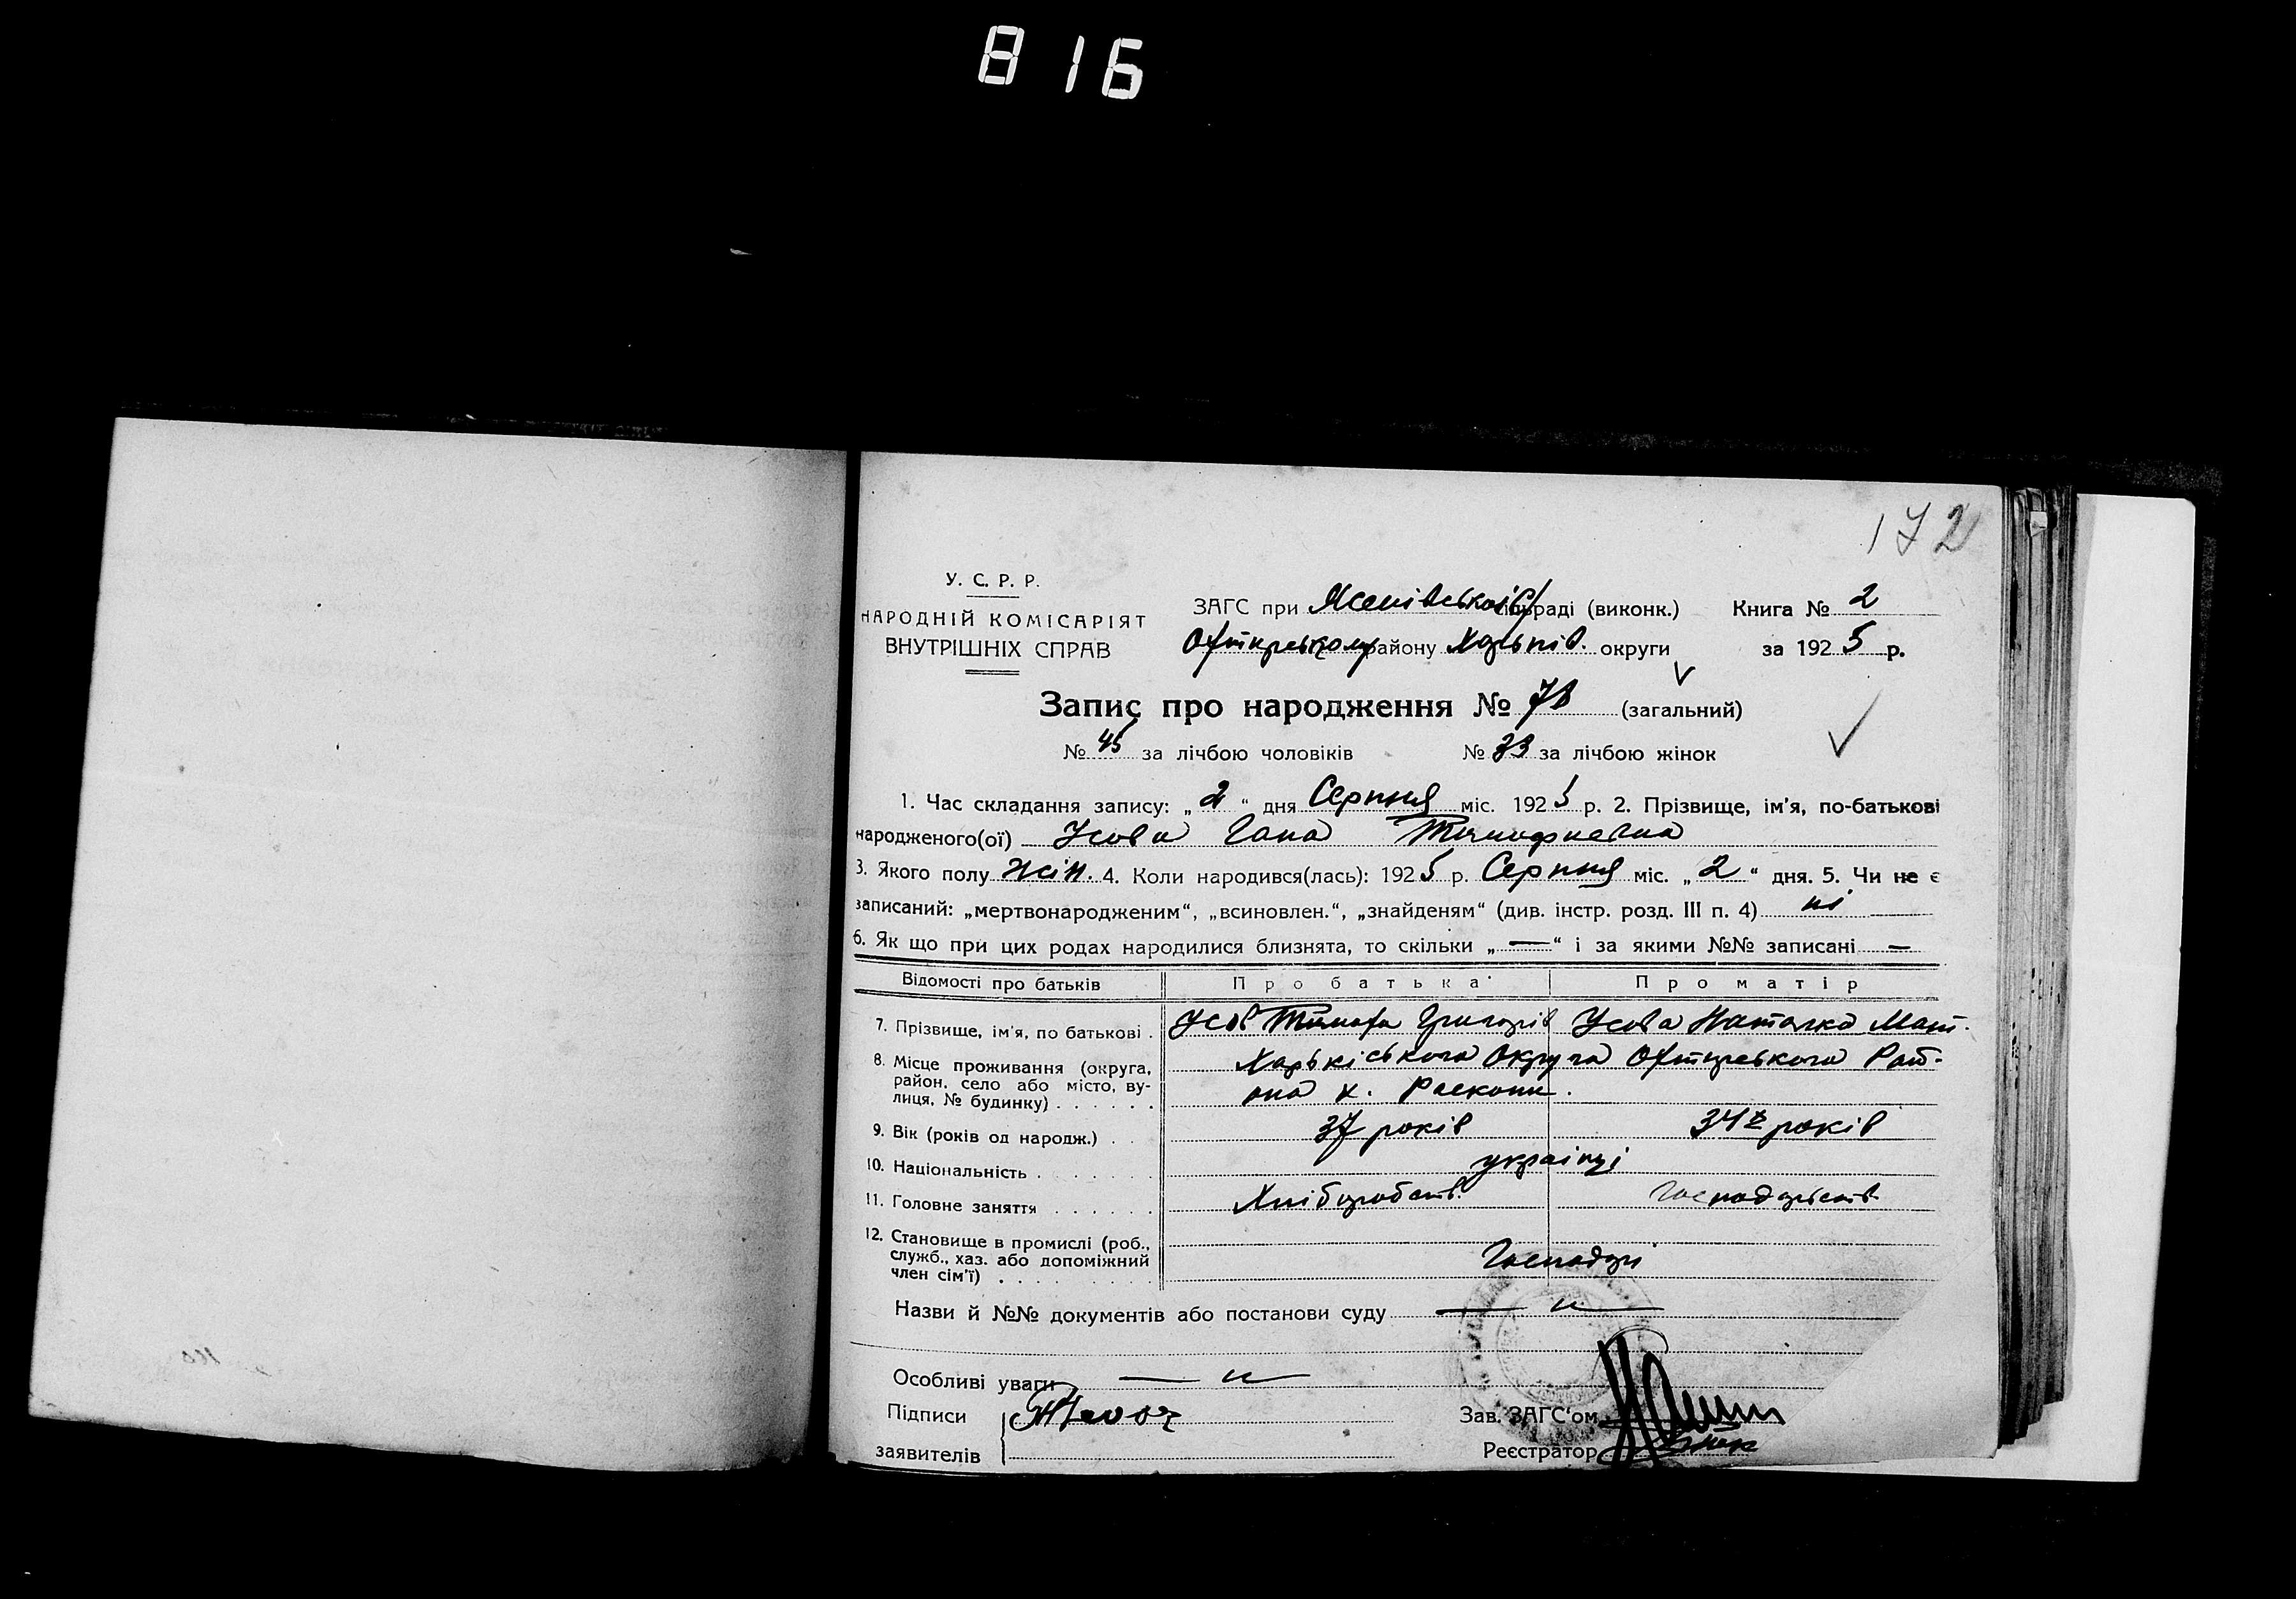 816
172
У. С. Р. Р.
НАРОДНІЙ КОМІСАРІЯТ
ВНУТРІШНІХ СПРАВ
ЗАГС при сільраді (виконк.) Книга № 2
району Харьків. округи за 1925 р.
Запис про народження № 78 (загальний)
№ 45 за лічбою чоловіків № 33 за лічбою жінок
1. Час складання запису: „2“ дня Серпня міс. 1925 р. 2. Прізвище, ім'я, по-батькові
народженого(ої) Усова Гана Тимофиевна
3. Якого полу жін. 4. Коли народився(лась): 1925 р. Серпня міс. „2“ дня. 5. Чи не є
записаний: „мертвонародженим“, „всиновлен.“, „знайденям“ (див. інстр. розд. III п. 4) ні
6. Як що при цих родах народилися близнята, то скільки „—“ і за якими №№ записані —
Відомості про батьків Про батька Про матір
7. Прізвище, ім'я, по батькові . Усов Тимофа Григорів Усова Наталка Мат.
8. Місце проживання (округа, район, село або місто, вулиця, № будинку) . . . . . . Харькіського Округа Охтирського Рай-
она х. Раскопи.
9. Вік (років од народж.) . . 37 років 34 років
10. Національність . . . . . . українці
11. Головне заняття . . . . . . Хліборобств. Господарств
12. Становище в промислі (роб., служб., хаз. або допоміжний член сім'ї) . . . . . . Господарі
Назви й №№ документів або постанови суду — „ —
Особливі уваги — „ —
Підписи
заявителів
Зав. ЗАГС'ом
Реєстратор